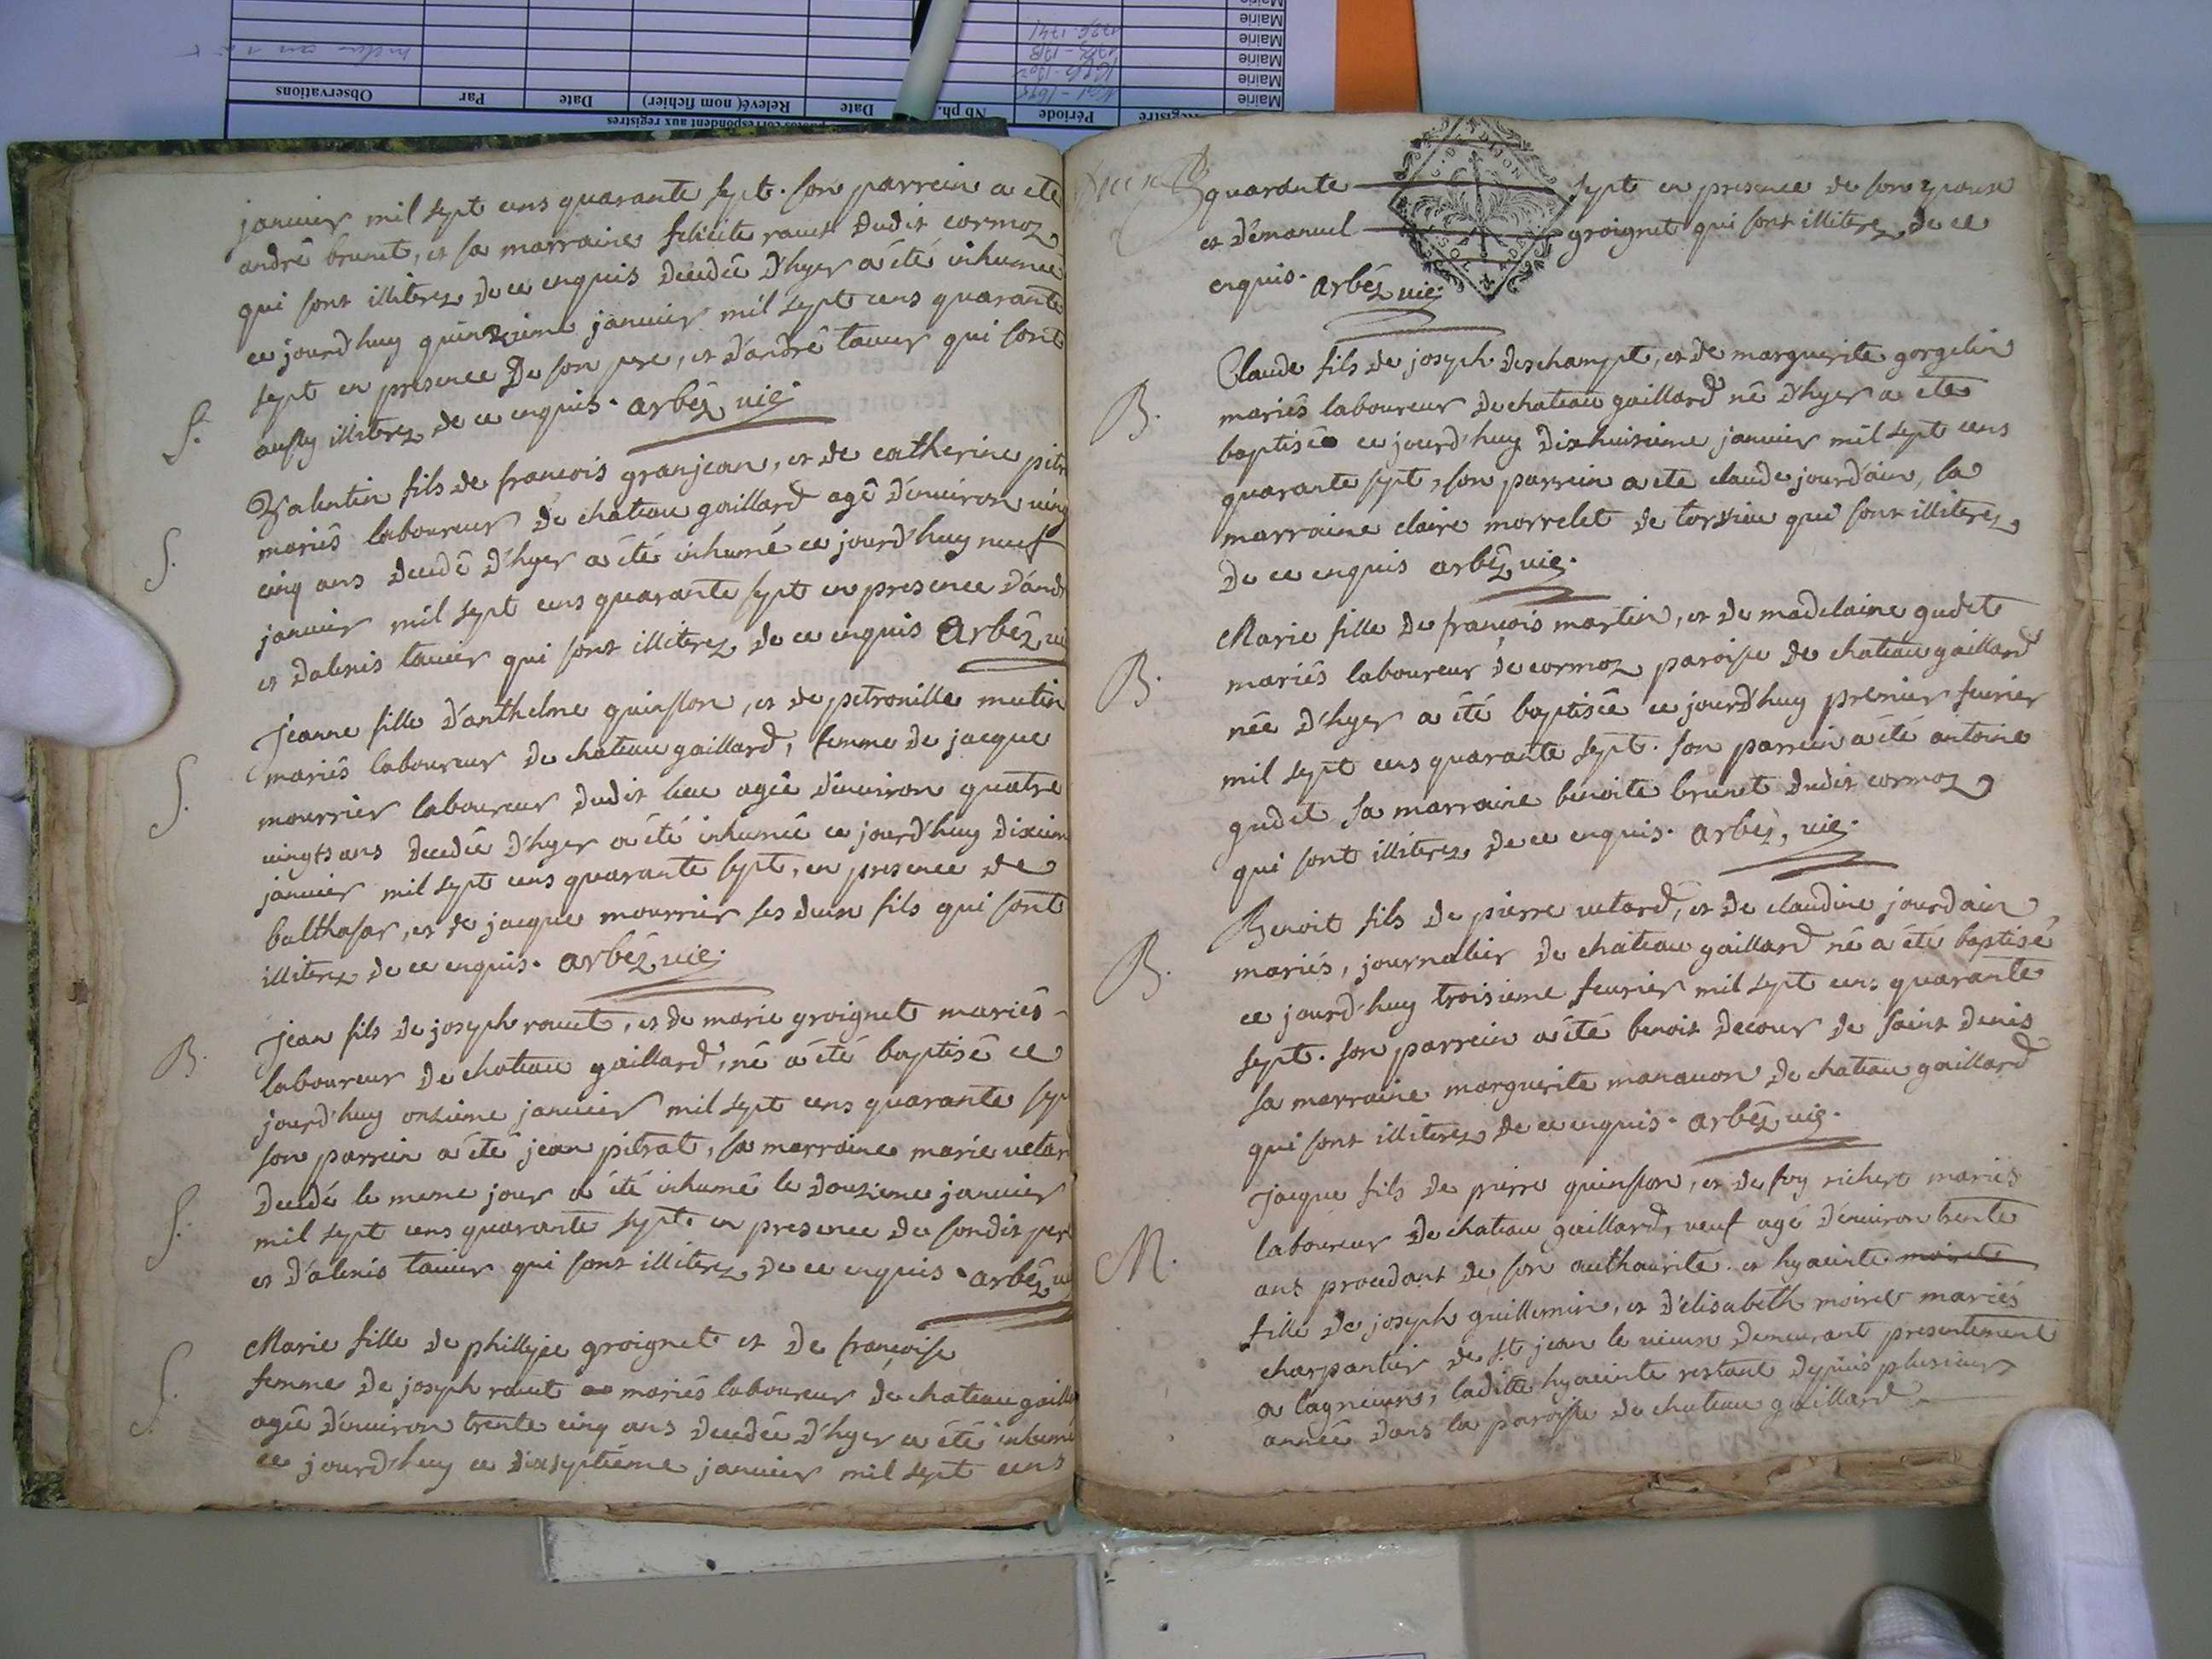 Mairie
Mairie
Mairie
Mairie
Mairie
Observations
Par
Date
Relevé( nom fichier)
Date
Nb ph.
Période
Registre
correspondent aux registres
janvier mil sept cens quarante sept. son parrein a ete
andrê brunet, et sa marraine felicite ravet dudit cormoz
qui sont illiterez de ce enquis decedée d'hyer a été inhumée
ce jourd'huy quinzieme janvier mil sept cens quarante
sept en presence De son pere, et d'andrê tavier qui sont
aussy illiterez de ce enquis. arbéz vic.
S.
Valentin fils de francois granjean, et de catherine pitr
mariês laboureur de chateau gaillard agê d'environ ving
S.
cinq ans decedê d'hyer a été inhumé ce jourd'huy neuf
janvier mil sept cens quarante sept en presence d'and
et d'alexis tavier qui sont illiterez de ce enquis arbéz vi
Jeanne fille d'anthelme quinson, et de petronille mutin
mariês laboureur de chateau gaillard, femme de jacque
S.
mourrier laboureur dudit lieu agée d'environ quatre
vingts ans decedée d'hyer a été inhumée ce jourd'huy dixiem
janvier mil sept cens quarante sept, en presence de
balthasar, et de jacque mourrier ses deux fils qui sont
illiterez de ce enquis. arbéz vic.
Jean fils de joseph ravet, et de marie groignet mariés
B.
laboureur de chateau gaillard, né a été baptisé ce
jourd'huy onzieme janvier mil sept cens quarante sep
son parrein a été jean pitrat, sa marraine marie vetar
S.
decedé le meme jour a été inhumé le douzieme janvier
mil sept cens quarante sept en presence de sondit per
et d'alexis tavier qui sont illiterez de ce enquis. arbéz vi
Marie fille de phillipe groignet et de françoise
S.
femme de joseph ravet mariés laboureur de chateau gaill
agée d'environ trente cinq ans decedée d'hyer a été inhumé
ce jourd'huy ce dixseptiéme janvier mil sept cens
quarante sept en presence de son epoux
et d'emanuel groignet qui sont illiterez de ce
enquis. arbéz vic.
Claude fils de joseph deschampt, et de marguerite gorgelin
B.
mariés laboureur de chateau gaillard né d'hyer a ete
baptisé ce jourd'huy dixhuitieme janvier mil sept cens
quarante sept, son parrein a ete claude jourdain, sa
marraine claire morrelet de torvieu qui sont illiterez
de ce enquis arbéz vic.
Marie fille de francois martin, et de madelaine gudet
B.
mariés laboureur de cormoz paroisse de chateau gaillard
née d'hyer a été baptisée ce jourd'huy premier fevrier
mil sept cens quarante sept. son parrein a été antoine
gudet sa marraine benoite brunet dudit cormoz
qui sont illiterez de ce enquis. arbéz, vic.
Benoit fils de pierre vetard, et de claudine jourdain
B.
mariés, journalier de chateau gaillard né a été baptisé
ce jourd'huy troisieme fevrier mil sept cens quarante
sept. son parrein a été benoit decour de saint denis
sa marraine marguerite manavon de chateau gaillard
qui sont illiterez de ce enquis. arbéz vic.
Jacque fils de pierre quinson, et de foy richert mariés
laboureur de chateau gaillard, veuf agé d'environ trente
M.
ans procedant de son authaurite. et hyacinte moiret
fille de joseph guillermin, et d'elisabeth moiret mariés
charpantier de st jean le vieux demeurant presentement
a lagnieux, laditte hyacinte restant depuis plusieurs
année dans la paroisse de chateau gaillard